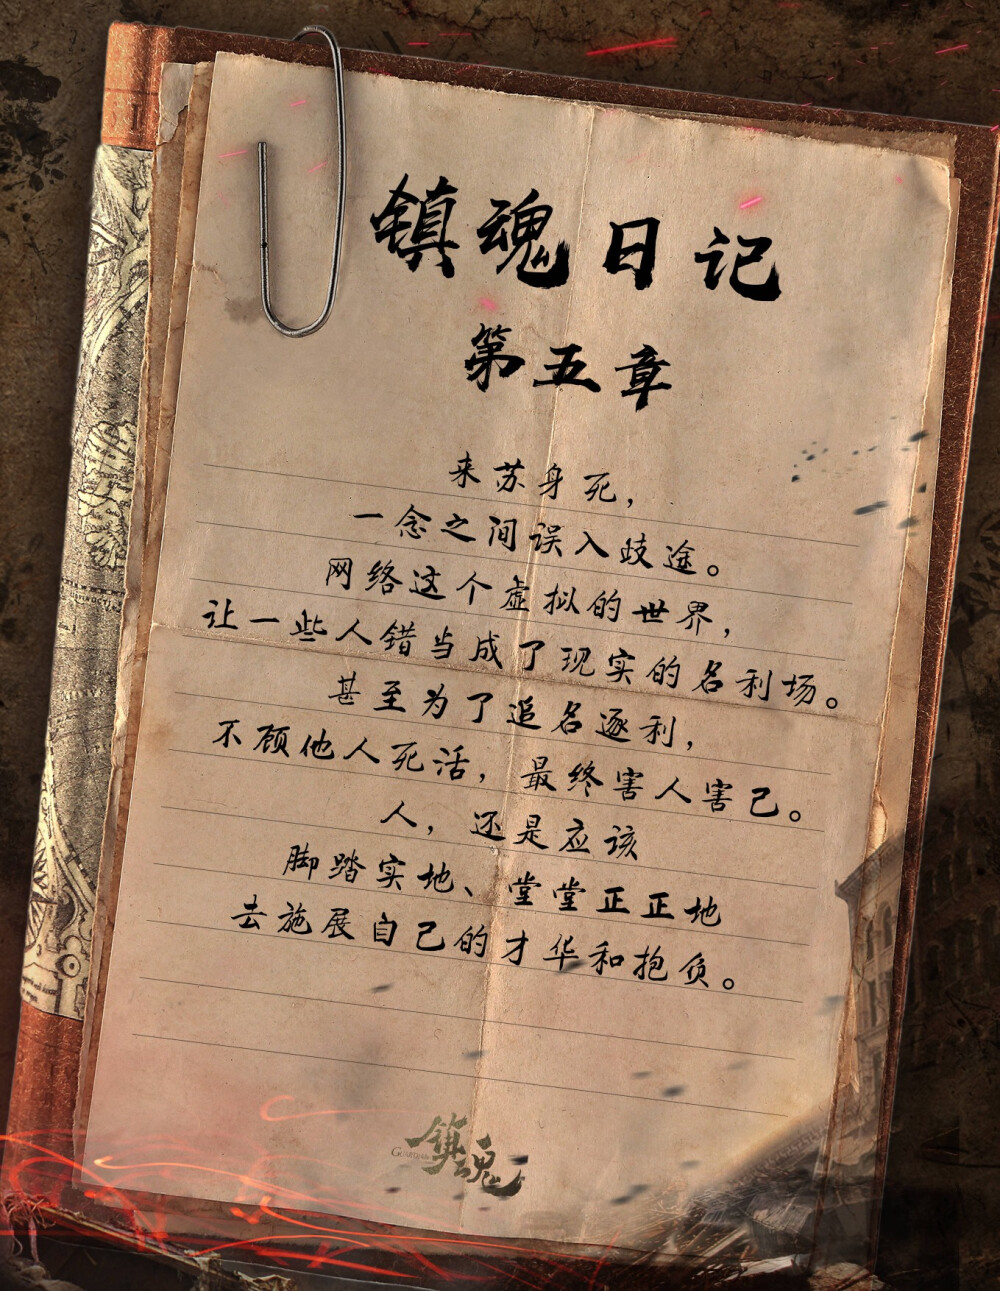 镇魂日记
第五章
来苏身死，
一念之间误入歧途。
网络这个虚拟的世界，
让一些人错当成了现实的名利场。
甚至为了追名逐利，
不顾他人死活，最终害人害己。
人，还是应该
脚踏实地、堂堂正正地
去施展自己的才华和抱负。
GUARDIAN
镇魂